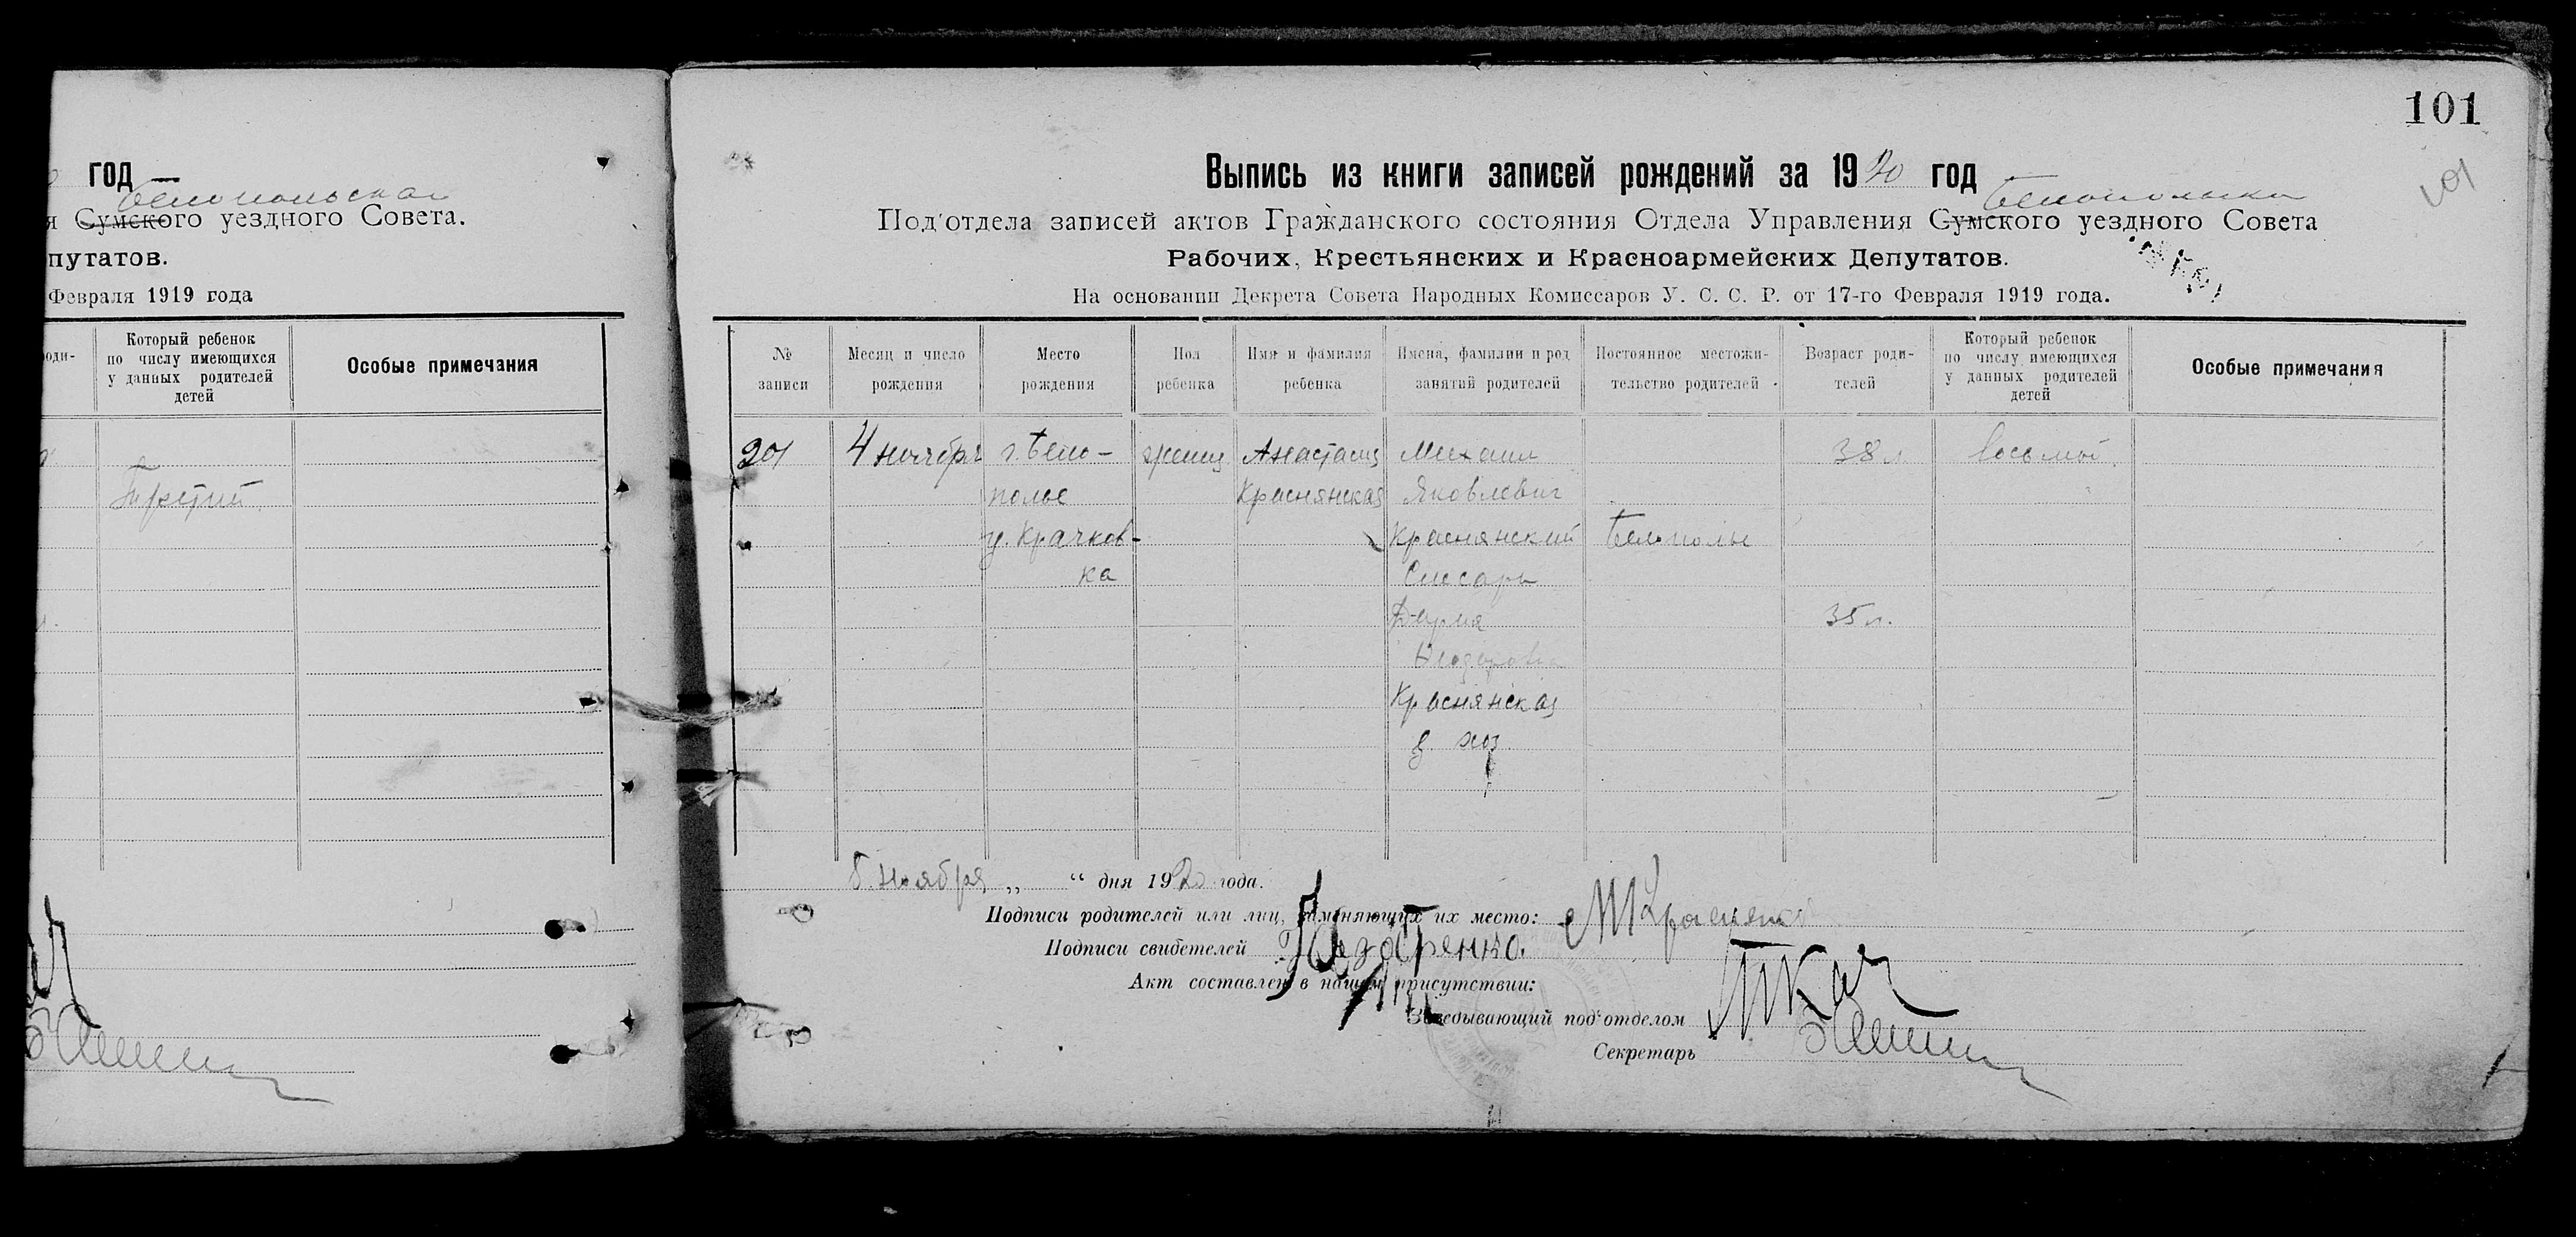 год
Белопольская
я Сумского уездного Совета.
путатов.
Февраля 1919 года
оди-
Который ребенок
по числу имеющихся
у данных родителей
детей
Особые примечания
Третий.
101
101
Выпись из книги записей рождений за 1920 год
Белопольска
Под'отдела записей актов Гражданского состояния Отдела Управления Сумского уездного Совета
Рабочих, Крестьянских и Красноармейских Депутатов.
На основании Декрета Совета Народных Комиссаров У. С. С. Р. от 17-го Февраля 1919 года.
№
записи
Месяц и число
рождения
Место
рождения
Пол
ребенка
Имя и фамилия
ребенка
Имена, фамилии и род
занятий родителей
Постоянное местожи-
тельство родителей
Возраст роди-
телей
Который ребенок
по числу имеющихся
у данных родителей
детей
Особые примечания
201
4 ноября
г. Бело-
полье
у. Крачков-
ка
женщ
Анастасия
Краснянская
Михаил
Яковлевич
Краснянский
Слесарь
Дария
Краснянская
д. хоз.
Белополье
38 л
35 л.
восьмой.
8 ноября „ “ дня 1920 года.
Подписи родителей или лиц, заменяющих их место: М Краснянский
Подписи свидетелей Назаренко.
Акт составлен в нашем присутствии:
Заведывающий под'отделом Ткач
Секретарь